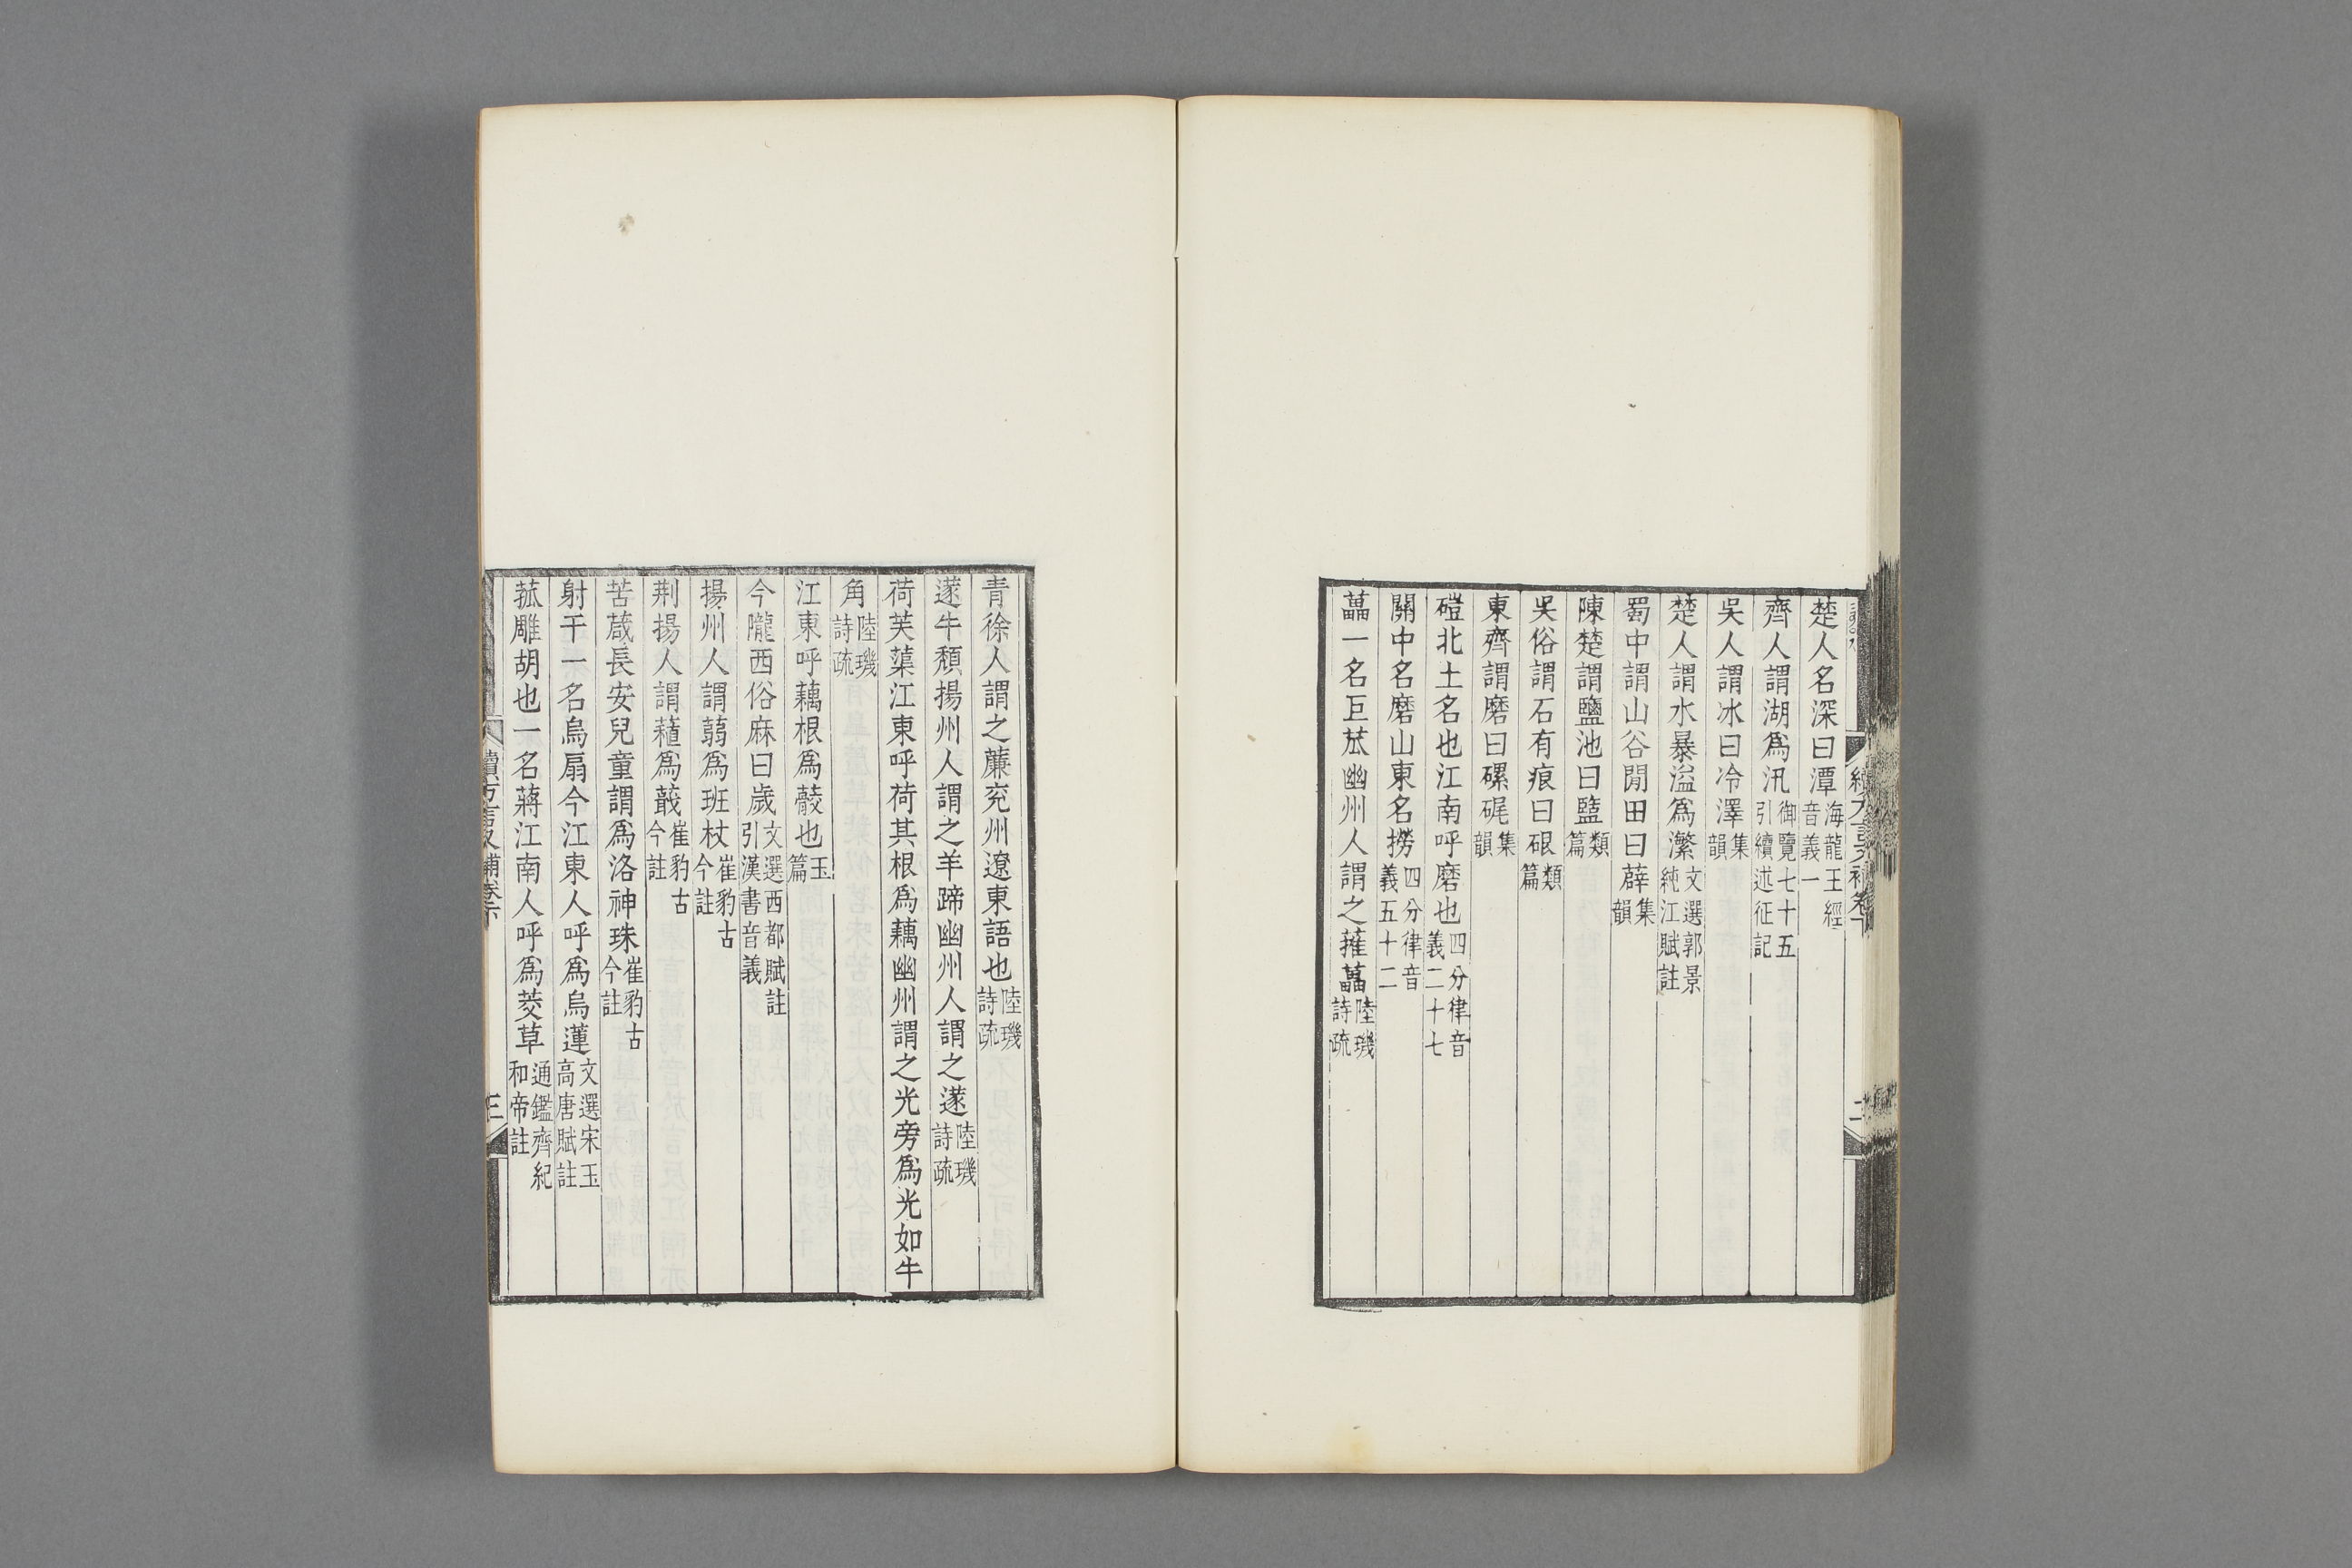 楚人名深曰潭海龍王經音義一
齊人謂湖爲汛御覽七十五引續述征記
吳人謂冰曰冷澤集韻
楚人謂水暴溢爲瀿文選郭景純江賦註
蜀中謂山谷閒田曰薜集韻
陳楚謂鹽池曰盬類篇
吳俗謂石有痕曰硍類篇
東齊謂磨曰磥硊集韻
磑北土名也江南呼磨也四分律音義二十七
關中名磨山東名撈四分律音義五十二
藟一名巨苽幽州人謂之蓷藟陸璣詩疏
青徐人謂之薕兖州遼東語也陸璣詩疏
蓫牛頹揚州人謂之羊蹄幽州人謂之蓫陸璣詩疏
荷芙蕖江東呼荷其根爲藕幽州謂之光旁爲光如牛
角陸璣詩疏
江東呼藕根爲䕧也玉篇
今隴西俗麻曰歲文選西都賦註引漢書音義
揚州人謂蒻爲班杖崔豹古今註
荆揚人謂蘓爲蕺崔豹古今註
苦葴長安兒童謂爲洛神珠崔豹古今註
射干一名烏扇今江東人呼爲烏蓮文選宋玉高唐賦註
菰雕胡也一名蔣江南人呼爲茭草通鑑齊紀和帝註
續方言又補卷下
三